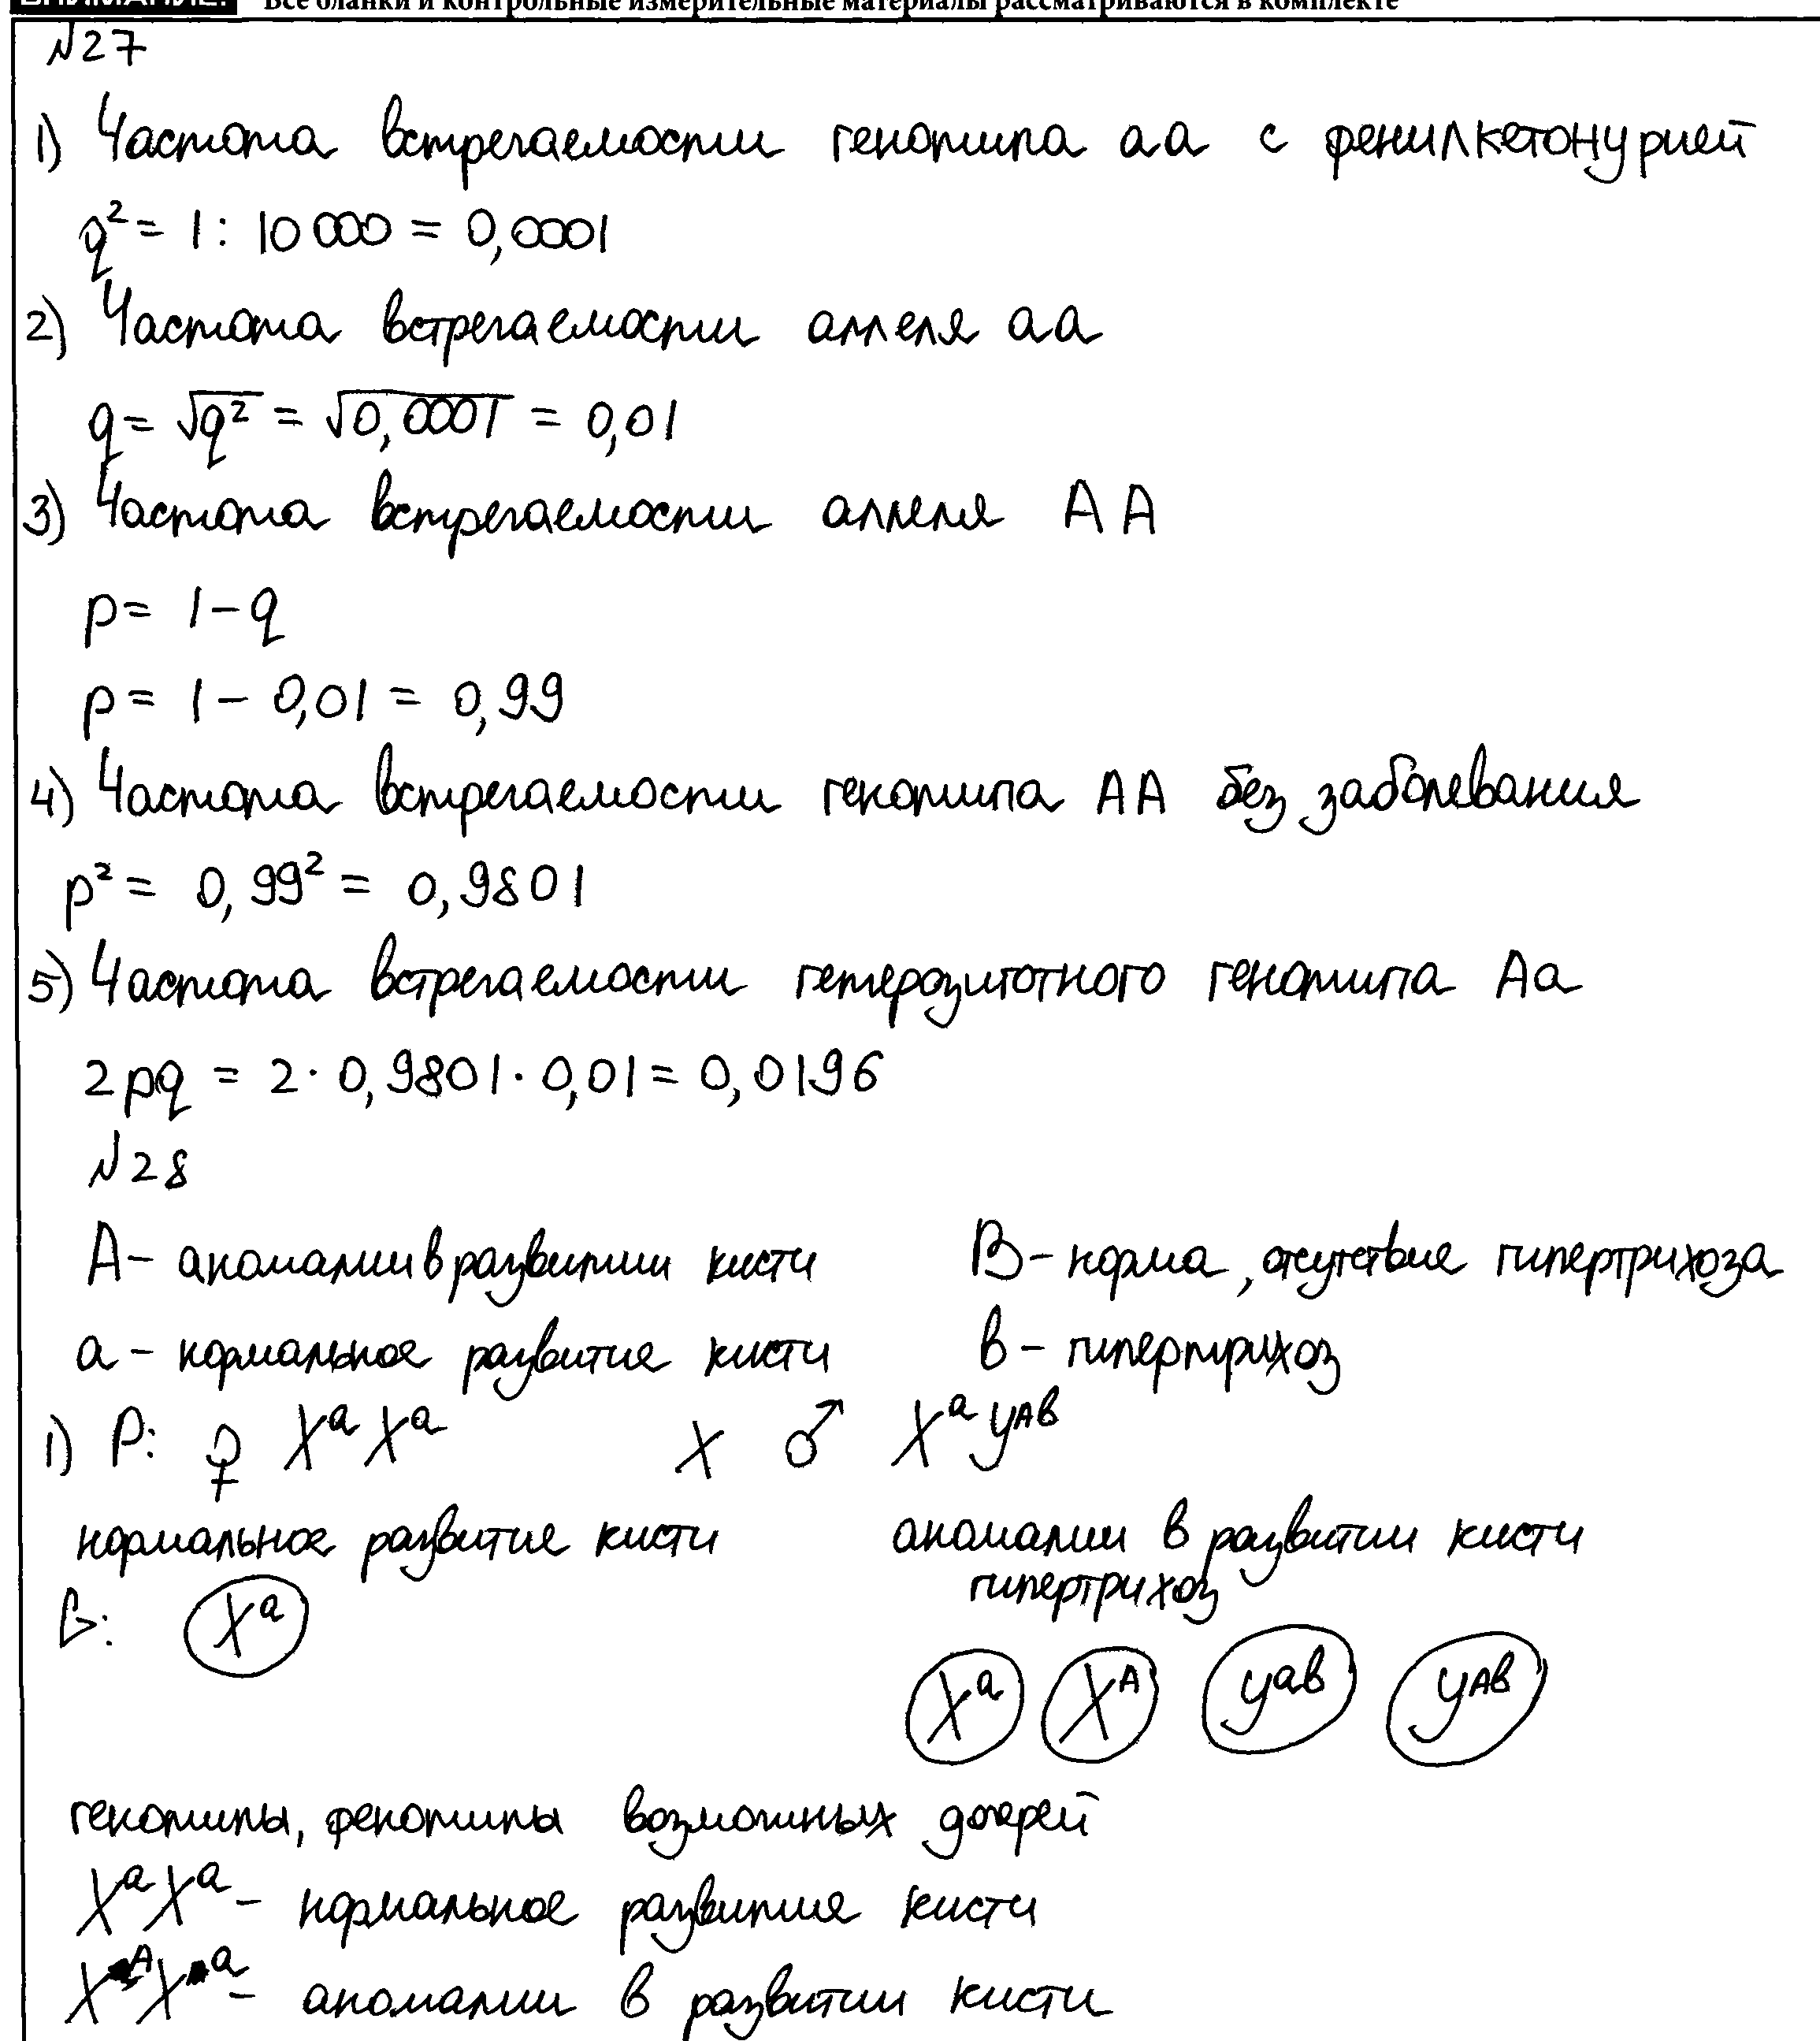 ВНИМАНИЕ! Все бланки и контрольные измерительные материалы рассматриваются в комплекте
№27
1) Частота встречаемости генотипа аа с фенилкетонурией
q² = 1 : 10 000 = 0,0001
2) Частота встречаемости аллеля аа
q = √q² = √0,0001 = 0,01
3) Частота встречаемости аллеля АА
p = 1 - q
p = 1 - 0,01 = 0,99
4) Частота встречаемости генотипа АА без заболевания
p² = 0,99² = 0,9801
5) Частота встречаемости гетерозиготного генотипа Аа
2pq = 2 · 0,9801 · 0,01 = 0,0196
№28
А - аномалии в развитии кисти В - норма, отсутствие гипертрихоза
а - нормальное развитие кисти в - гипертрихоз
1) P: ♀ Xᵃ Xᵃ X ♂ Xᵃ yᴬᵇ
нормальное развитие кисти аномалии в развитии кисти
гипертрихоз
G: Xᵃ
Xᵃ Xᴬ yᵃᵇ yᴬᵇ
генотипы, фенотипы возможных дочерей
XᵃXᵃ - нормальное развитие кисти
XᴬXᵃ - аномалии в развитии кисти